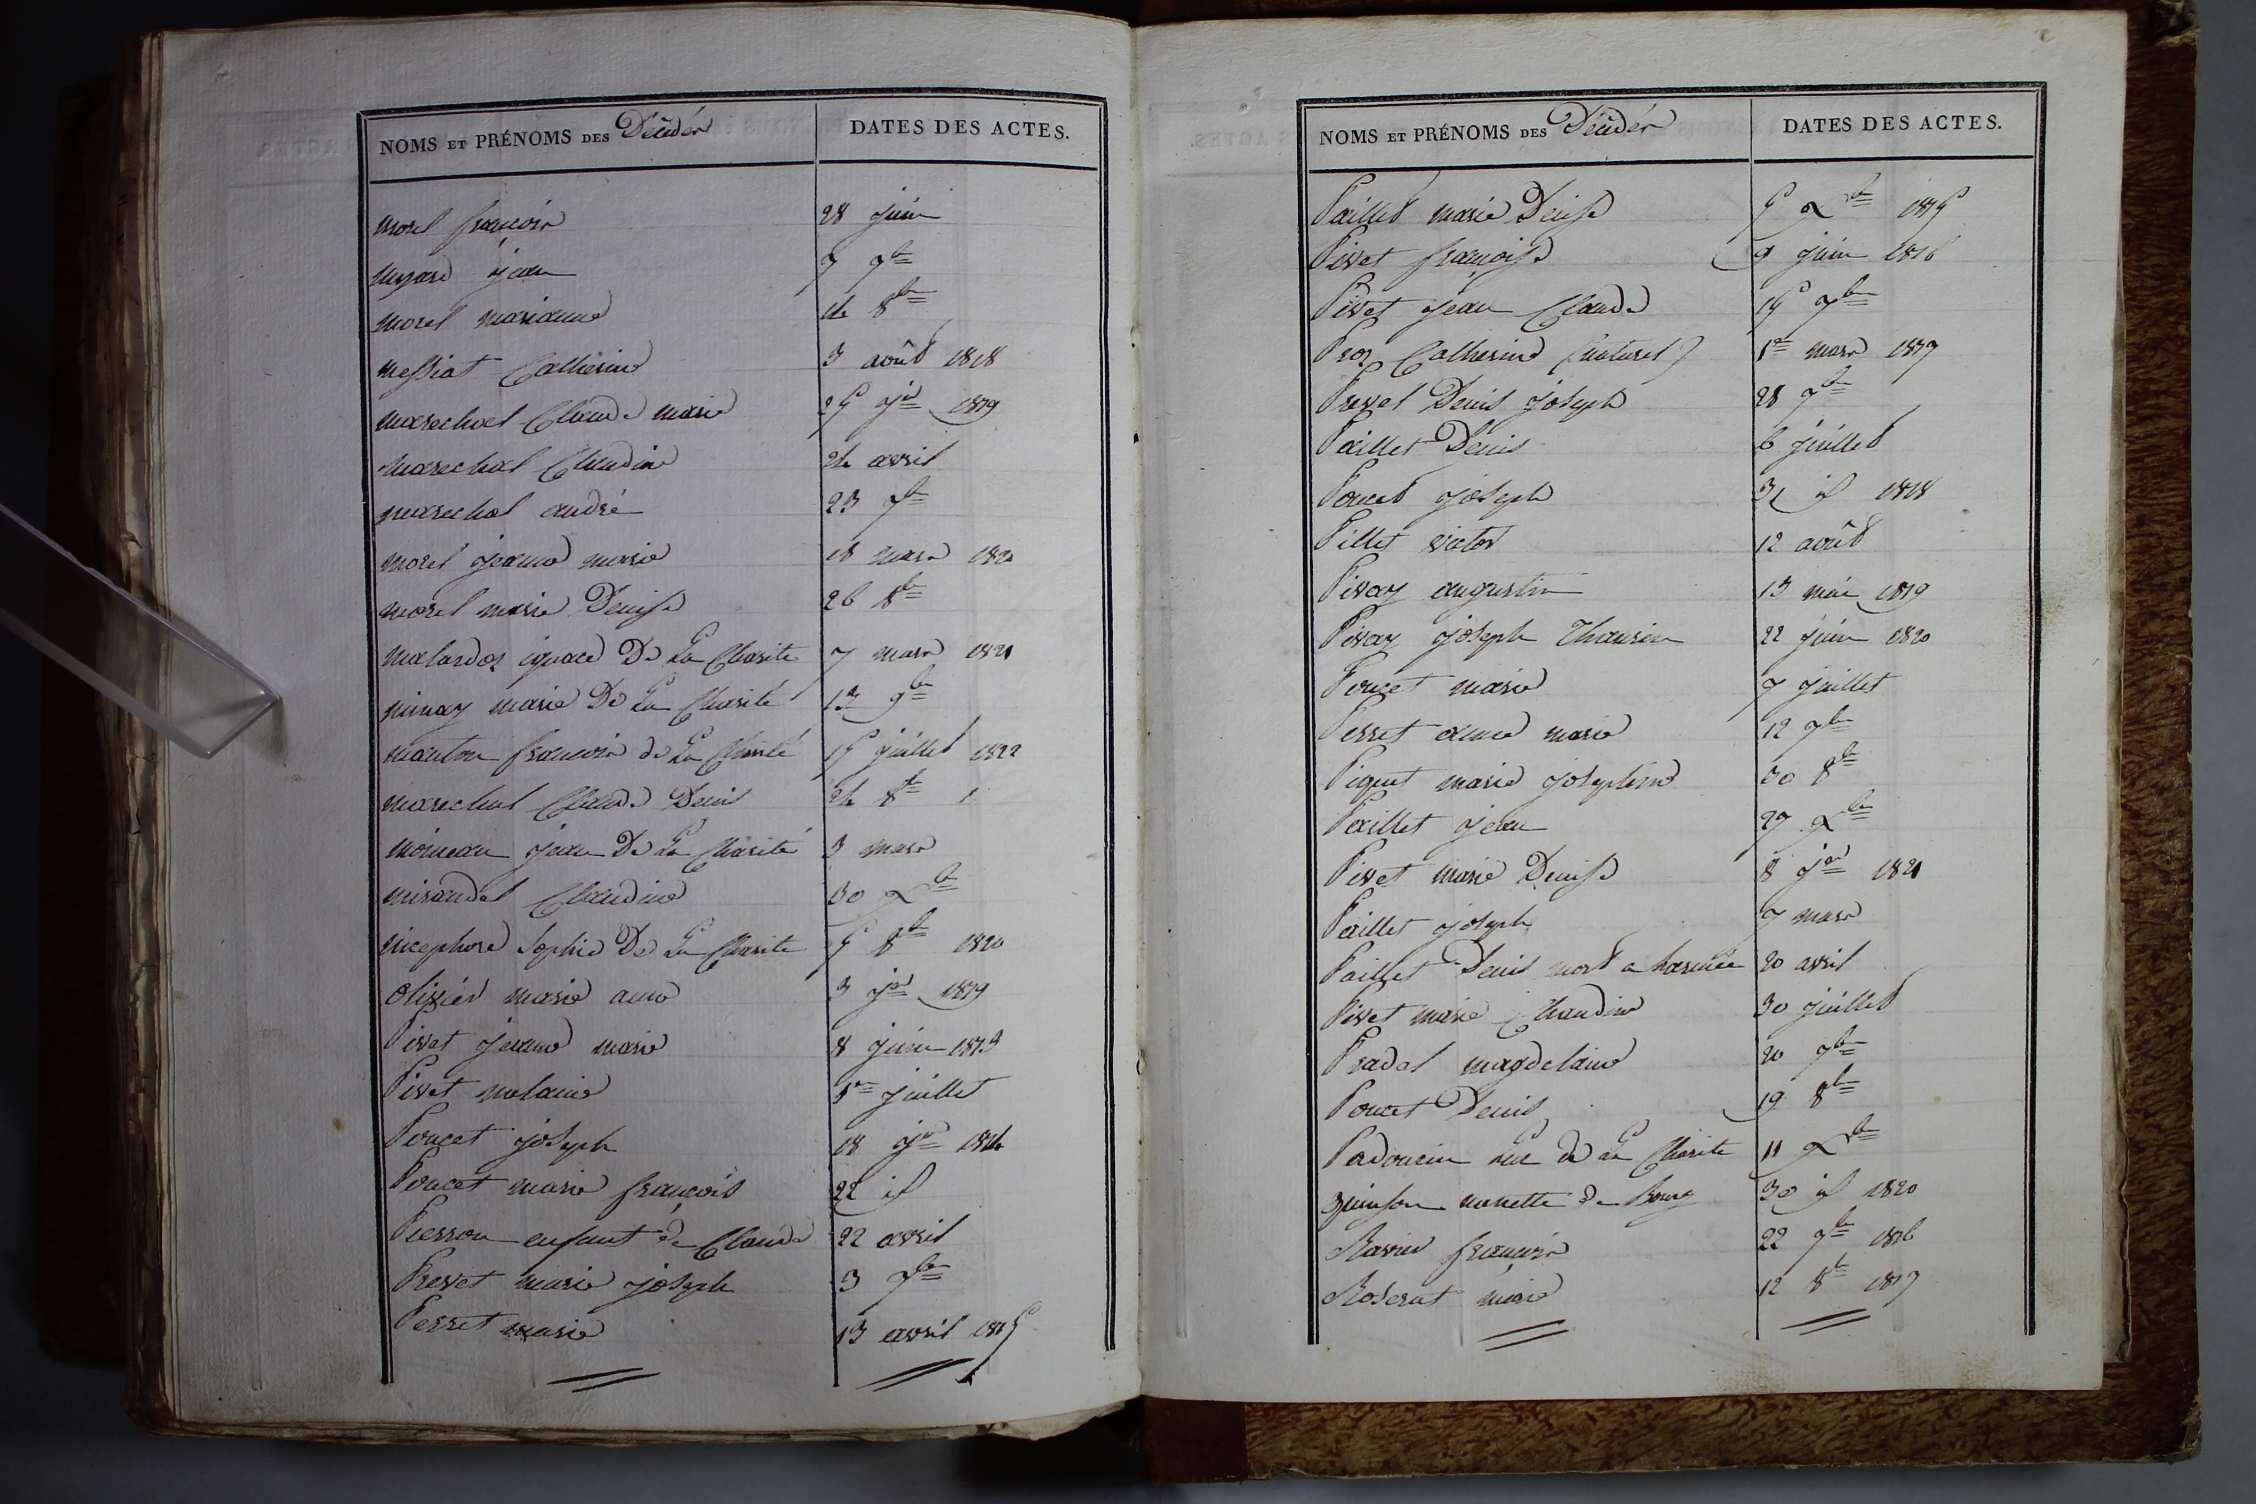 NOMS ET PRÉNOMS DES Décédés DATES DES ACTES.
morel françois 28 juin
myard jean 7 7bre
morel marianne 14 8bre
messiat Catherine 3 août 1818
marechal Claude marie 25 jer 1819
marechal Claudine 24 avril
marechal andré 23 7bre
morel jeanne marie 18 mars 1820
morel marie Denise 26 8bre
malardos ignace De La Charité 7 mars 1821
minay marie De La Charité 13 9bre
manton françois de La Charité 15 juillet 1822
marechal Claude Denis 24 8bre
moineau jean De La Charité 3 mars
mirandel Claudine 30 Xbre
nicephore Sophie De La Charité 5 8bre 1820
Olivier marie anne 3 jer 1819
Pivet jeanne marie 8 juin 1813
Pivet melanie 1er juillet
Poncet joseph 18 jer 1814
Poncet marie françois 22 id
Pierron enfant de Claude 22 avril
Prevet marie joseph 3 7bre
Perret marie 13 avril 1815
NOMS ET PRÉNOMS DES Décédés DATES DES ACTES.
Paillet marie Denise 5 Xbre 1815
Pivet françoise 9 juin 1816
Pivet jean Claude 15 7bre
Proz Catherine (naturel) 1er mars 1817
Prevel Denis joseph 28 7bre
Paillet Denis 6 juillet
Poncet joseph 31 id 1818
Pillet victor 12 août
Pivay augustin 13 mai 1819
Pivay joseph Thaurin 22 juin 1820
Poncet marie 7 juillet
Perret anne marie 12 7bre
Piquet marie josephine 30 8bre
Paillet jean 27 Xbre
Pivet marie Denise 8 jer 1821
Paillet joseph 7 mars
Paillet Denis mort a larmée 20 avril
Pivet marie Claudine 30 juillet
Pradel magdelaine 20 7bre
Poncet Denis 19 8bre
Padoucin de La Charité 11 Xbre
quinson nanette de Bourg 30 id 1820
Ravier françois 22 7bre 1816
Roserat marie 12 8bre 1817